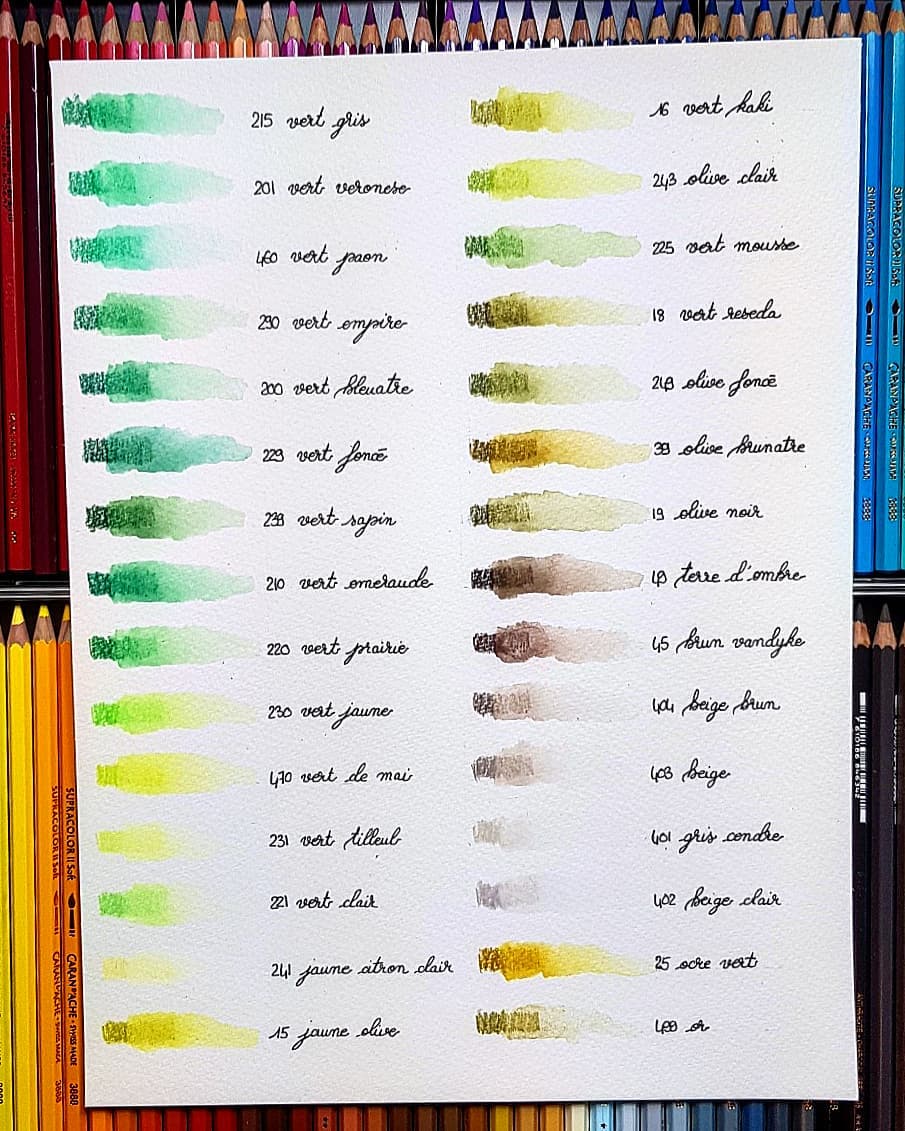 215 vert gris
201 vert veronese
460 vert paon
290 vert empire
200 vert bleuatre
229 vert foncē
239 vert sapin
210 vert emeraude
220 vert prairie
230 vert jaune
470 vert de mai
231 vert tilleul
221 vert clair
241 jaune citron clair
15 jaune olive
16 vert kaki
243 olive clair
225 vert mousse
18 vert reseda
249 olive foncē
39 olive brunatre
19 olive noir
49 terre d'ombre
45 brun vandyke
404 beige brun
403 beige
401 gris cendre
402 beige clair
25 ocre vert
499 or
SUPRACOLOR II Soft
CARAN D'ACHE · SWISS MADE
3888
SUPRACOLOR II Soft
CARAN D'ACHE · SWISS MADE
3888
SUPRACOLOR II Soft
CARAN D'ACHE
3888
SUPRACOLOR II Soft
CARAN D'ACHE
3888